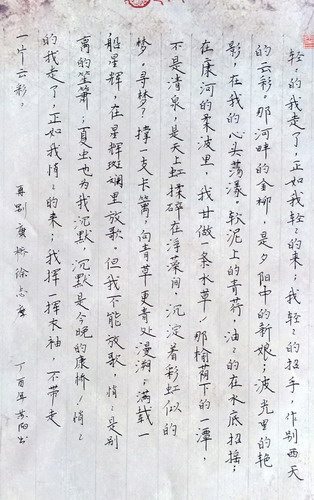 轻轻的我走了，正如我轻轻的来；我轻轻的招手，作别西天
的云彩。那河畔的金柳，是夕阳中的新娘；波光里的艳
影，在我的心头荡漾。软泥上的青荇，油油的在水底招摇；
在康河的柔波里，我甘做一条水草！那榆荫下的一潭，
不是清泉，是天上虹揉碎在浮藻间，沉淀着彩虹似的
梦。寻梦？撑一支长篙，向青草更青处漫溯，满载一
船星辉，在星辉斑斓里放歌。但我不能放歌，悄悄是别
离的笙箫；夏虫也为我沉默，沉默是今晚的康桥！悄悄
的我走了，正如我悄悄的来；我挥一挥衣袖，不带走
一片云彩。
再别康桥徐志摩
丁酉年